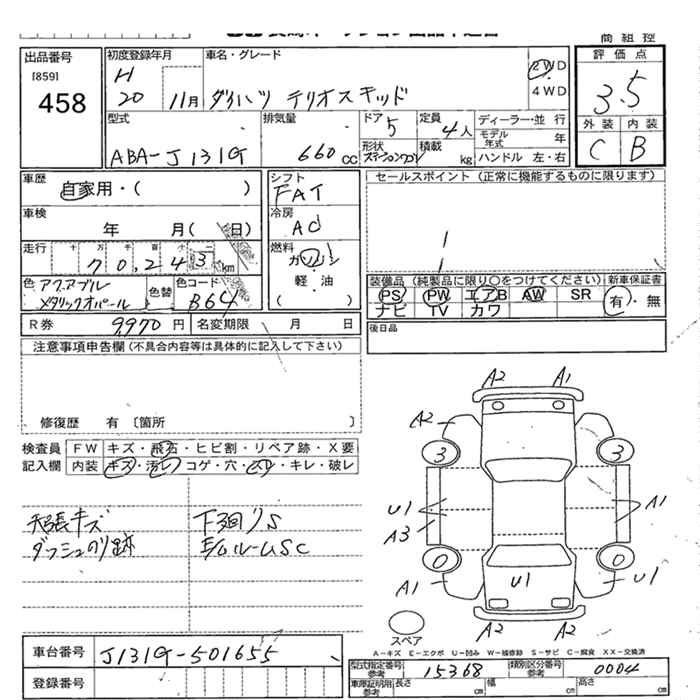 商組控
出品番号
[859]
458
初度登録年月
車名・グレード
H
20 11月 ダイハツ テリオスキッド
2WD
4WD
評価点
3.5
外装 内装
C B
型式
ABA-J131G
排気量
660 cc
ドア 5
定員 4人
ディーラー・並行
モデル年式 年
形状 ステーションワゴン
積載 kg
ハンドル 左・右
車歴
自家用・( )
シフト
FAT
セールスポイント (正常に機能するものに限ります)
車検
年 月( 日)
冷房
AC
走行 十 万 千 百 十 一
70,243 km
燃料
ガソリン
軽・油
( )
色 アクアブル
メタリックオパール
色替
色コード
B64
装備品 (純製品に限り○をつけてください)
新車保証書
PS PW エアB AW SR
ナビ TV カワ
有・無
R券 9970円
名変期限 月 日
後日品
注意事項申告欄 (不具合内容等は具体的に記入して下さい)
修復歴 有 〔箇所 〕
検査員
記入欄
FW キズ・飛石・ヒビ割・リペア跡・X要
内装 キズ・汚レ・コゲ・穴・スレ・キレ・破レ
天張キズ
ダッシュのり跡
下回りS
E/GルームSC
A2 A1
A2
3 3
U1
A3
A1
0 0
A1
U1
U1
A2 A2
スペア
A-キズ E-エクボ U-凹み W-補修跡 S-サビ C-腐食 XX-交換済
車台番号 J131G-501655
登録番号
型式指定番号 参考 15368
類別区分番号 参考 0004
車庫証明用 参考 長さ cm 幅 cm 高さ cm